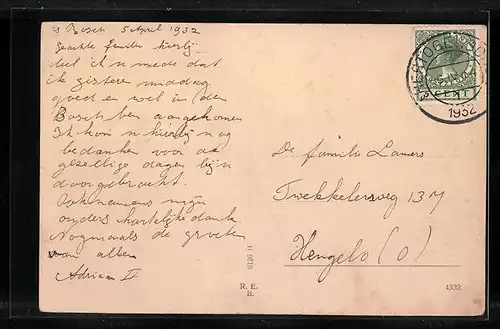 's Bosch 5 April 1932
Geachte familie hierbij
deel ik u mede dat
ik gisteren middag
goed en wel in den
Bosch ben aangekomen
Ik kom u hierbij nog
bedanken voor de
gezellige dagen bij u
doorgebracht.
Ook namens mijn
ouders hartelijke dank.
Nogmaals de groeten
van allen
Adriaan
De familie Lamers
Twekkelerweg 13
Hengelo (O)
CENT
1932
R. E.
B.
4332